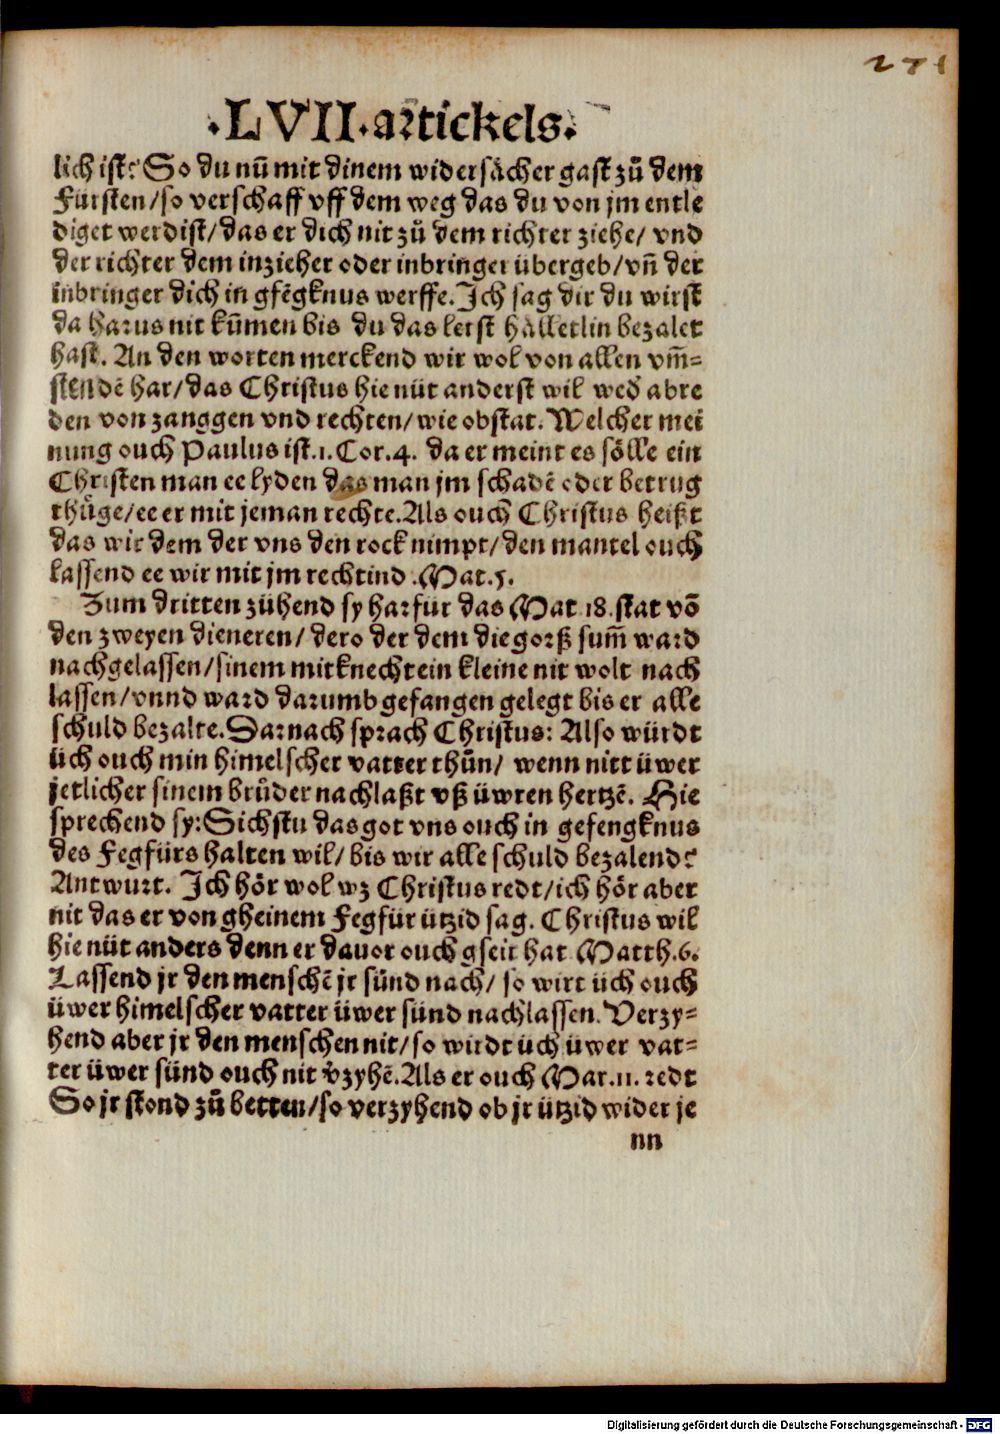 271
.LVII.artickels.
lich ist? So du nū mit dinem widersächer gast zů dem
Fürsten/so verschaff vff dem weg das du von jm entle
diget werdist/das er dich nit zů dem richter ziehe/ vnd
der richter dem inzieher oder inbringer übergeb/vñ der
inbringer dich in gfēgknus werffe. Ich sag dir du wirst
da harus nit kum̄en bis du das letst hällerlin bezalet
hast. An den worten merckend wir wol von allen vm̄-
stendē har/das Christus hie nüt anderst wil wed̕ abre
den von zanggen vnd rechten/wie obstat. Welcher mei
nung ouch Paulus ist.1.Cor.4. da er meint es sölle ein
Christen man ee lyden das man jm schadē oder betrug
thüge/ee er mit jeman rechte. Als ouch Christus heißt
das wir dem der vns den rock nimpt/den mantel ouch
lassend ee wir mit jm rechtind .Mat.5.
Zum dritten zühend sy harfür das Mat 18.stat vō
den zweyen dieneren/dero der dem die gorß sum̄ ward
nachgelassen/sinem mitknecht ein kleine nit wolt nach
lassen/vnnd ward darumb gefangen gelegt bis er alle
schuld bezalte. Darnach sprach Christus: Also würdt
üch ouch min himelscher vatter thůn/ wenn nitt üwer
jetlicher sinem brůder nachlaßt vß üwren hertzē. Hie
sprechend sy: Sichstu das got vns ouch in gefengknus
des Fegfürs halten wil/bis wir alle schuld bezalend?
Antwurt. Ich hör wol wz Christus redt/ich hör aber
nit das er von gheinem Fegfür ützid sag. Christus wil
hie nüt anders denn er dauor ouch gseit hat Matth.6.
Lassend jr den menschē jr sünd nach/ so wirt üch ouch
üwer himelscher vatter üwer sünd nachlassen. Verzy-
hend aber jr den menschen nit/so wirdt üch üwer vat-
ter üwer sünd ouch nit v̕zyhē. Als er ouch Mar.11. redt
So jr stond zů betten/so verzyhend ob jr ützid wider je
nn
Digitalisierung gefördert durch die Deutsche Forschungsgemeinschaft - DFG